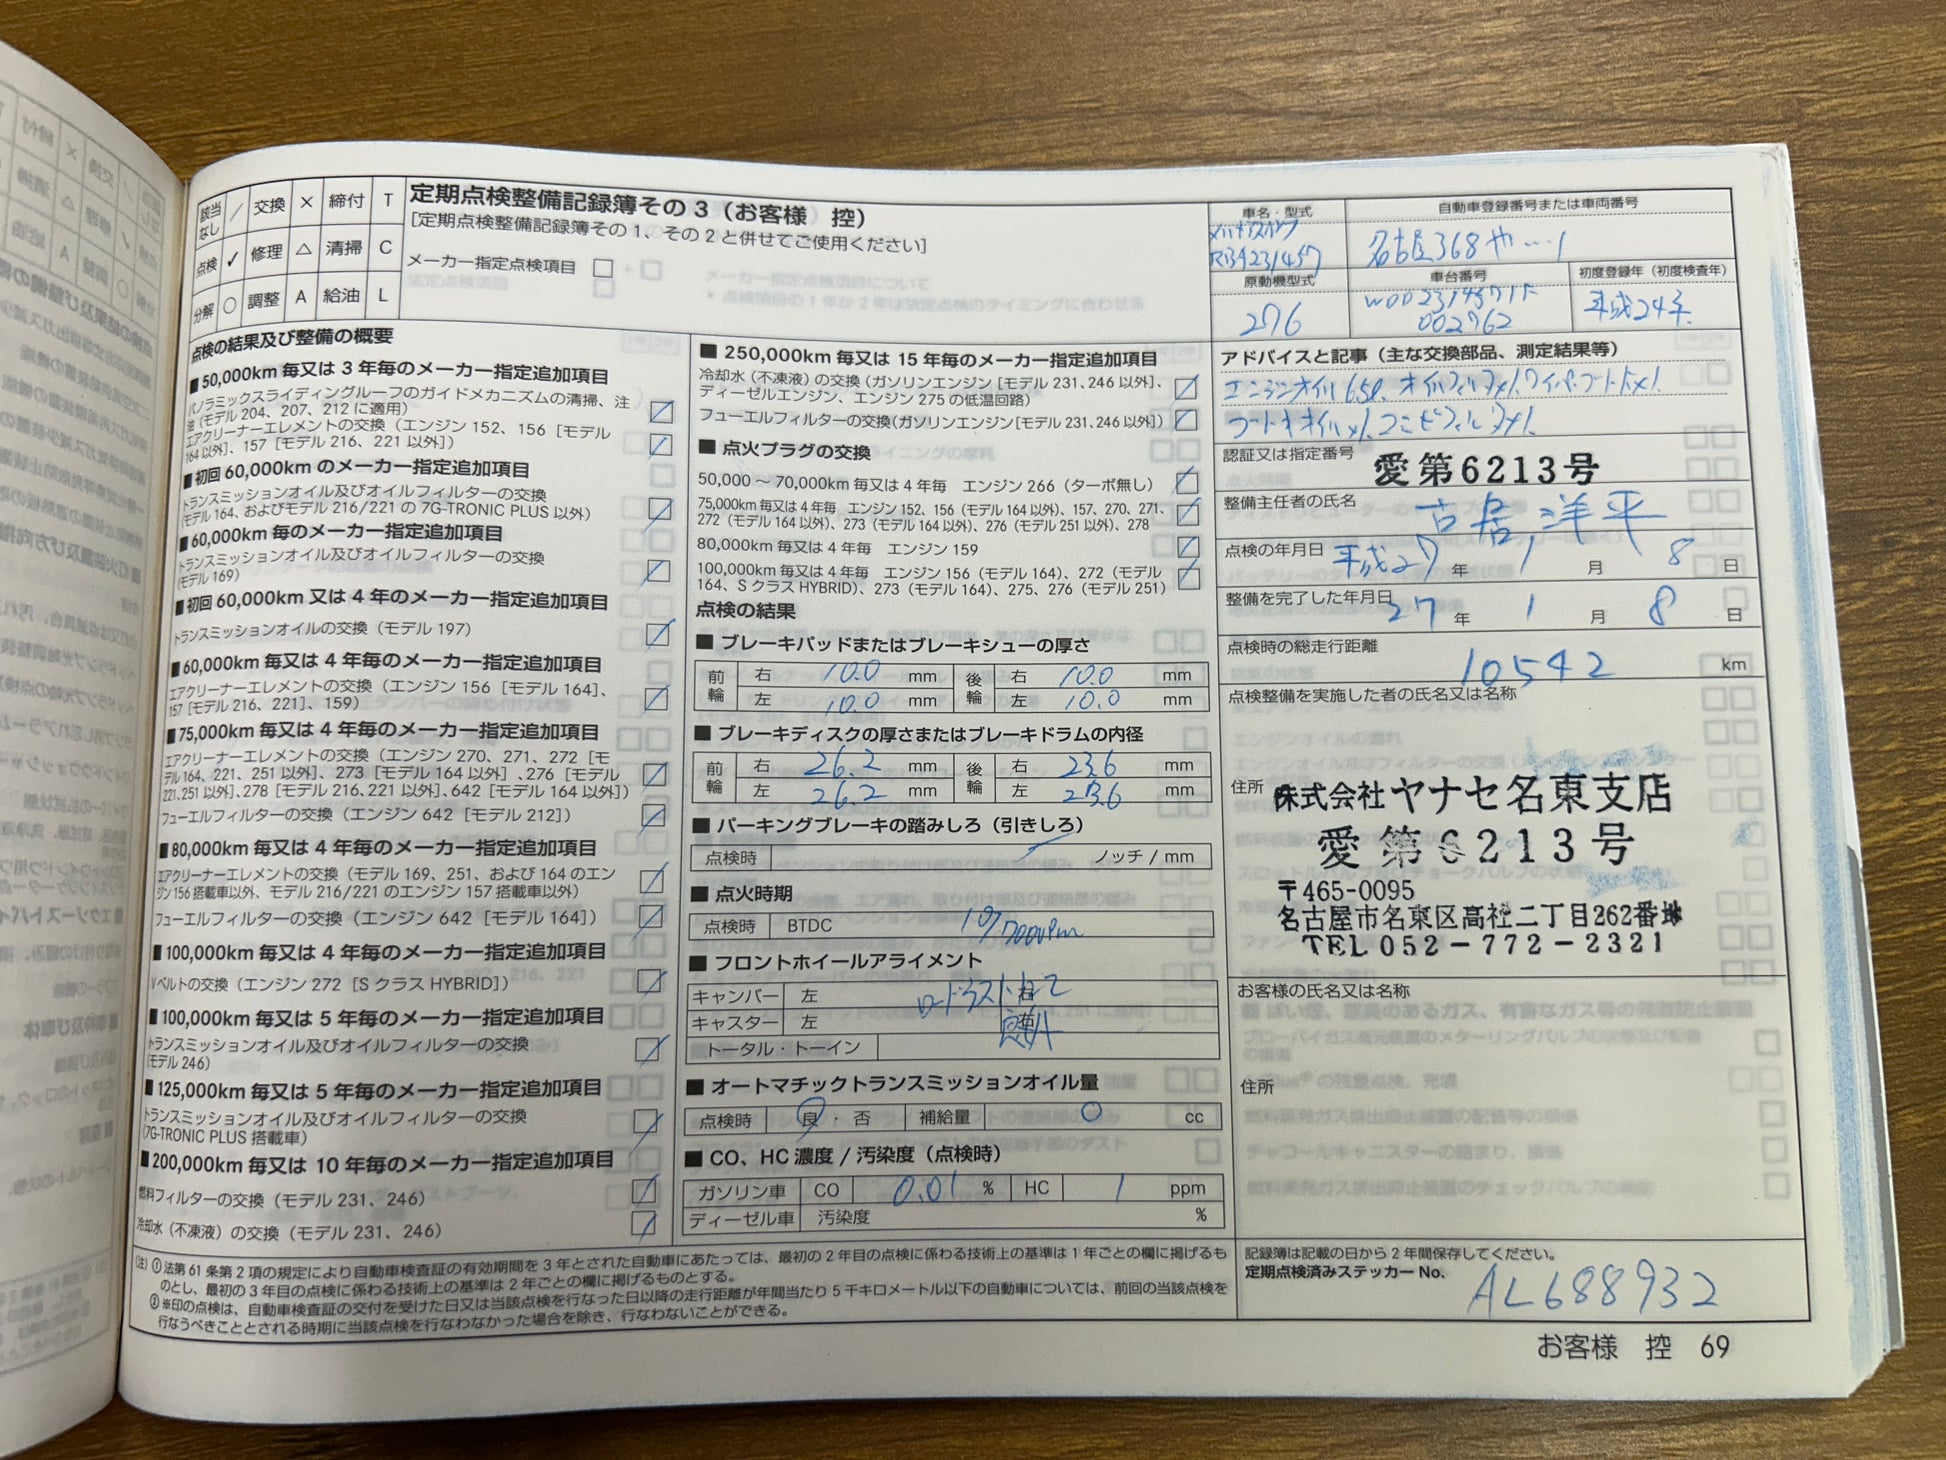 該当なし ／ 交換 × 締付 T
点検 ✓ 修理 △ 清掃 C
分解 ○ 調整 A 給油 L
定期点検整備記録簿その3（お客様 控）
[定期点検整備記録簿その1、その2と併せてご使用ください]
メーカー指定点検項目 □
点検の結果及び整備の概要
■50,000km毎又は3年毎のメーカー指定追加項目
パノラミックスライディングルーフのガイドメカニズムの清掃、注
油（モデル204、207、212に適用）
エアクリーナーエレメントの交換（エンジン152、156［モデル
164以外］、157［モデル216、221以外］）
■初回60,000kmのメーカー指定追加項目
トランスミッションオイル及びオイルフィルターの交換
（モデル164、およびモデル216/221の7G-TRONIC PLUS以外）
■60,000km毎のメーカー指定追加項目
トランスミッションオイル及びオイルフィルターの交換
（モデル169）
■初回60,000km又は4年毎のメーカー指定追加項目
トランスミッションオイルの交換（モデル197）
■60,000km毎又は4年毎のメーカー指定追加項目
エアクリーナーエレメントの交換（エンジン156［モデル164］、
157［モデル216、221］、159）
■75,000km毎又は4年毎のメーカー指定追加項目
エアクリーナーエレメントの交換（エンジン270、271、272［モ
デル164、221、251以外］、273［モデル164以外］、276［モデル
221、251以外］、278［モデル216、221以外］、642［モデル164以外］）
フューエルフィルターの交換（エンジン642［モデル212］）
■80,000km毎又は4年毎のメーカー指定追加項目
エアクリーナーエレメントの交換（モデル169、251、および164のエン
ジン156搭載車以外、モデル216/221のエンジン157搭載車以外）
フューエルフィルターの交換（エンジン642［モデル164］）
■100,000km毎又は4年毎のメーカー指定追加項目
Vベルトの交換（エンジン272［SクラスHYBRID］）
■100,000km毎又は5年毎のメーカー指定追加項目
トランスミッションオイル及びオイルフィルターの交換
（モデル246）
■125,000km毎又は5年毎のメーカー指定追加項目
トランスミッションオイル及びオイルフィルターの交換
（7G-TRONIC PLUS搭載車）
■200,000km毎又は10年毎のメーカー指定追加項目
燃料フィルターの交換（モデル231、246）
冷却水（不凍液）の交換（モデル231、246）
■250,000km毎又は15年毎のメーカー指定追加項目
冷却水（不凍液）の交換（ガソリンエンジン［モデル231、246以外］、
ディーゼルエンジン、エンジン275の低温回路）
フューエルフィルターの交換（ガソリンエンジン［モデル231、246以外］）
■点火プラグの交換
50,000～70,000km毎又は4年毎 エンジン266（ターボ無し）
75,000km毎又は4年毎 エンジン152、156（モデル164以外）、157、270、271、
272（モデル164以外）、273（モデル164以外）、276（モデル251以外）、278
80,000km毎又は4年毎 エンジン159
100,000km毎又は4年毎 エンジン156（モデル164）、272（モデル
164、SクラスHYBRID）、273（モデル164）、275、276（モデル251）
点検の結果
■ブレーキパッドまたはブレーキシューの厚さ
前輪 右 10.0 mm 後輪 右 10.0 mm
左 10.0 mm 左 10.0 mm
■ブレーキディスクの厚さまたはブレーキドラムの内径
前輪 右 26.2 mm 後輪 右 23.6 mm
左 26.2 mm 左 23.6 mm
■パーキングブレーキの踏みしろ（引きしろ）
点検時 ノッチ/mm
■点火時期
点検時 BTDC 10°/700rpm
■フロントホイールアライメント
キャンバー 左 右
キャスター 左 右
ロードテスト にて
良好
トータル・トーイン
■オートマチックトランスミッションオイル量
点検時 良・否 補給量 0 cc
■CO、HC濃度/汚染度（点検時）
ガソリン車 CO 0.01 % HC 1 ppm
ディーゼル車 汚染度 %
車名・型式
メルセデスベンツ
RBA231457
自動車登録番号または車両番号
名古屋368や…1
原動機型式
276
車台番号
002762
初度登録年（初度検査年）
平成24年
アドバイスと記事（主な交換部品、測定結果等）
エンジンオイル6.5ℓ、オイルフィルタ×1、ワイパーブレード×1
ブレーキオイル×1、コンビフィルタ×1
認証又は指定番号
愛第6213号
整備主任者の氏名
古居洋平
点検の年月日 平成27年 1月 8日
整備を完了した年月日 27年 1月 8日
点検時の総走行距離
10542 km
点検整備を実施した者の氏名又は名称
住所
株式会社ヤナセ名東支店
愛第6213号
〒465-0095
名古屋市名東区高社二丁目262番地
TEL 052-772-2321
お客様の氏名又は名称
住所
記録簿は記載の日から2年間保存してください。
定期点検済みステッカーNo.
AL688932
（注）①法第61条第2項の規定により自動車検査証の有効期間を3年とされた自動車にあたっては、最初の2年目の点検に係わる技術上の基準は1年ごとの欄に掲げるも
のとし、最初の3年目の点検に係わる技術上の基準は2年ごとの欄に掲げるものとする。
②※印の点検は、自動車検査証の交付を受けた日又は当該点検を行なった日以降の走行距離が年間当たり5千キロメートル以下の自動車については、前回の当該点検を
行なうべきこととされる時期に当該点検を行なわなかった場合を除き、行なわないことができる。
お客様 控 69